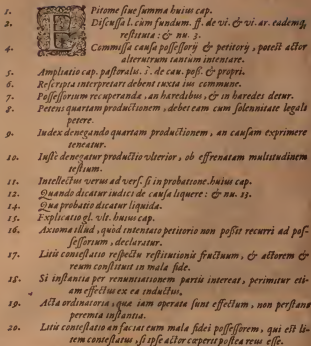 1. Epitome siue summa huius cap.
2. Discussa l. cùm fundum. ff. de vi. & vi. ar. eademq́;
restituta: & nu. 3.
4. Commissa causa possessorij & petitorij, potest actor
alterutrum tantùm intentare.
5. Ampliatio cap. pastoralis. i. de cau. poss. & propri.
6. Rescripta interpretari debent iuxta ius commune.
7. Possessorium recuperanda, an hæredibus, & in hæredes detur.
8. Petens quartam productionem, debet eam cum solennitate legali
petere.
9. Iudex denegando quartam productionem, an causam exprimere
teneatur.
10. Iustè denegatur productio vlterior, ob effrenatam multitudinem
testium.
11. Intellectus verus ad vers. si in probatione. huius cap.
12. Quando dicatur iudici de causa liquere: & nu. 13.
14. Qua probatio dicatur liquida.
15. Explicatio gl. vlt. huius cap.
16. Axioma illud, quòd intentato petitorio non possit recurri ad pos-
sessorium, declaratur.
17. Litis contestatio respectu restitutionis fructuum, & actorem &
reum constituit in mala fide.
18. Si instantia per renuntiationem partis intereat, perimitur eti-
am effectus ex ea inductus.
19. Acta ordinatoria, quæ iam operata sunt effectum, non perstant
perempta instantia.
20. Litis contestatio an faciat eum malæ fidei possessorem, qui est li-
tem contestatus, si ipse actor cœperit postea reus esse.